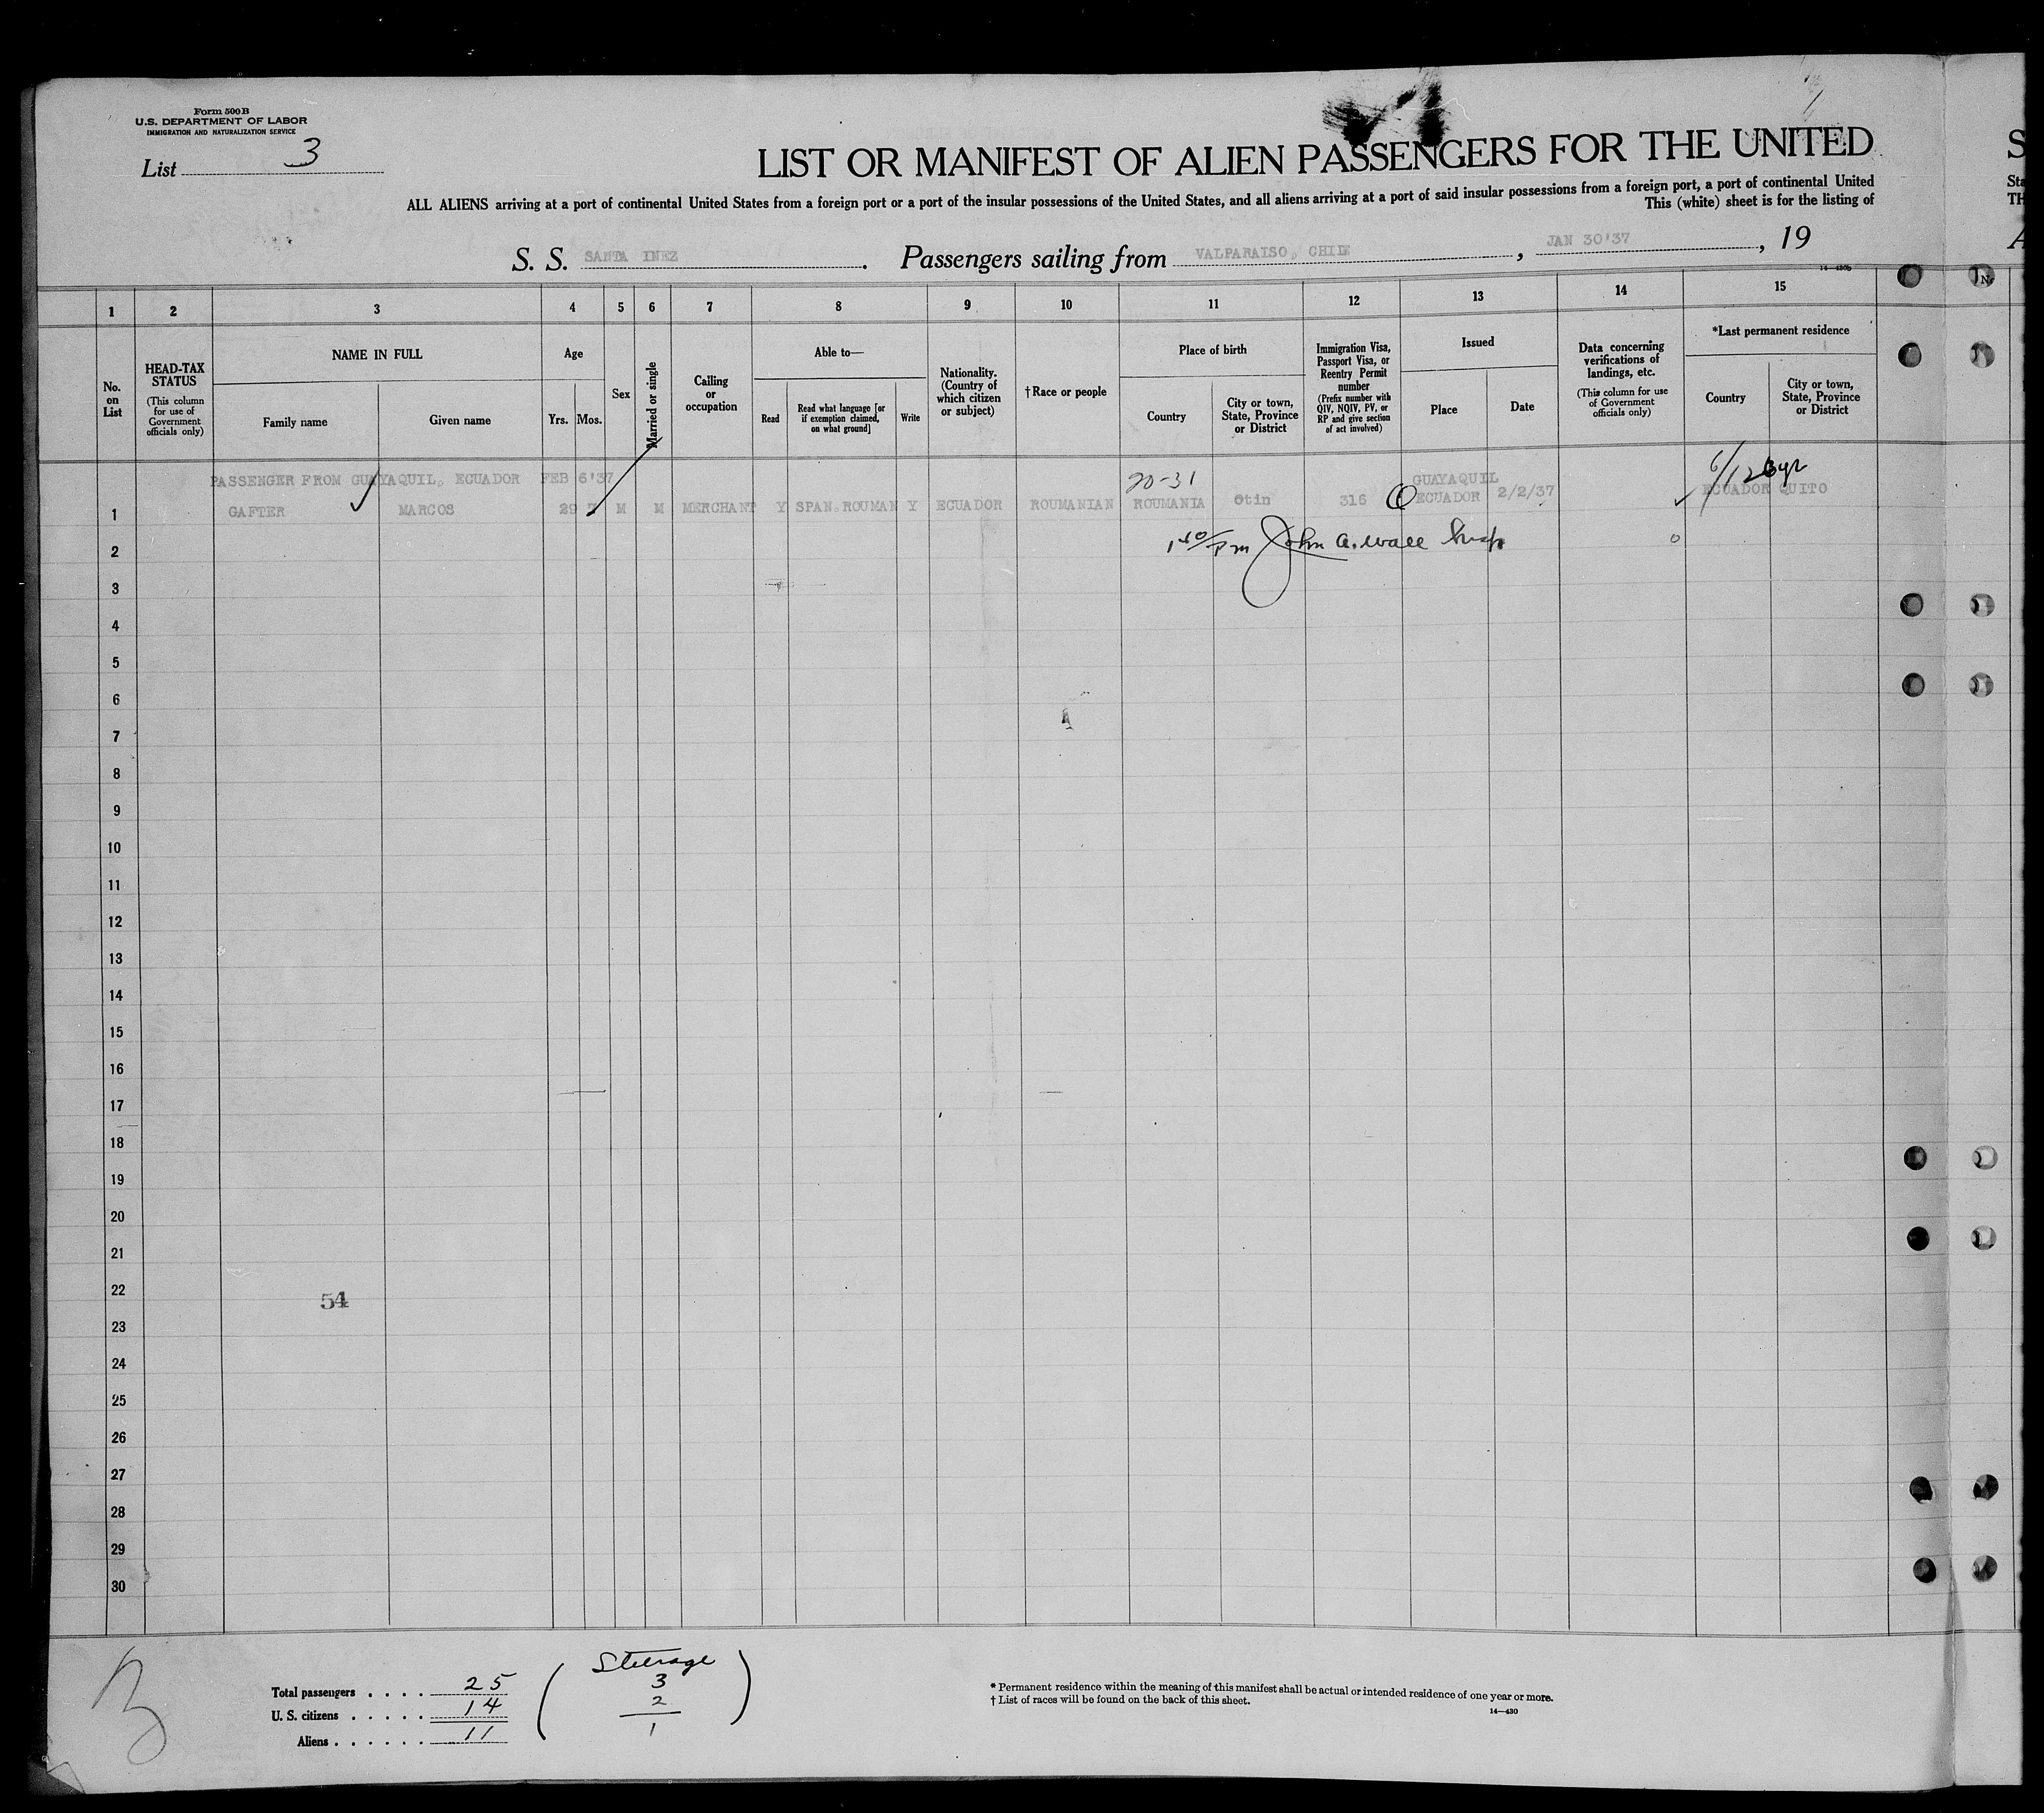 Form 500 B
U.S. DEPARTMENT OF LABOR
IMMIGRATION AND NATURALIZATION SERVICE
List 3
LIST OR MANIFEST OF ALIEN PASSENGERS FOR THE UNITED
ALL ALIENS arriving at a port of continental United States from a foreign port or a port of the insular possessions of the United States, and all aliens arriving at a port of said insular possessions from a foreign port, a port of continental United
This (white) sheet is for the listing of
S. S. SANTA INEZ. Passengers sailing from VALPARAISO, CHILE, JAN 30'37, 19
14—430b
1 2 3 4 5 6 7 8 9 10 11 12 13 14 15
No. on List
HEAD-TAX STATUS
(This column for use of Government officials only)
NAME IN FULL
Family name
Given name
Age
Yrs.
Mos.
Sex
Married or single
Calling or occupation
Able to—
Read
Read what language [or if exemption claimed, on what ground]
Write
Nationality. (Country of which citizen or subject)
†Race or people
Place of birth
Country
City or town, State, Province or District
Immigration Visa, Passport Visa, or Reentry Permit number
(Prefix number with QIV, NQIV, PV, or RP and give section of act involved)
Issued
Place
Date
Data concerning verifications of landings, etc.
(This column for use of Government officials only)
*Last permanent residence
Country
City or town, State, Province or District
PASSENGER FROM GUAYAQUIL, ECUADOR FEB 6'37
20-31
GUAYAQUIL
1 GAFTER MARCOS 29 M M MERCHANT Y SPAN.ROUMAN Y ECUADOR ROUMANIAN ROUMANIA Otin 316 ECUADOR 2/2/37 ECUADOR QUITO
2 1 40/Pm John A. Wall Insp
3
4
5
6
7
8
9
10
11
12
13
14
15
16
17
18
19
20
21
22
54
23
24
25
26
27
28
29
30
3
Total passengers . . . . 25
U. S. citizens . . . . . 14
Aliens . . . . . . 11
Steerage
3
2
1
* Permanent residence within the meaning of this manifest shall be actual or intended residence of one year or more.
† List of races will be found on the back of this sheet.
14—430